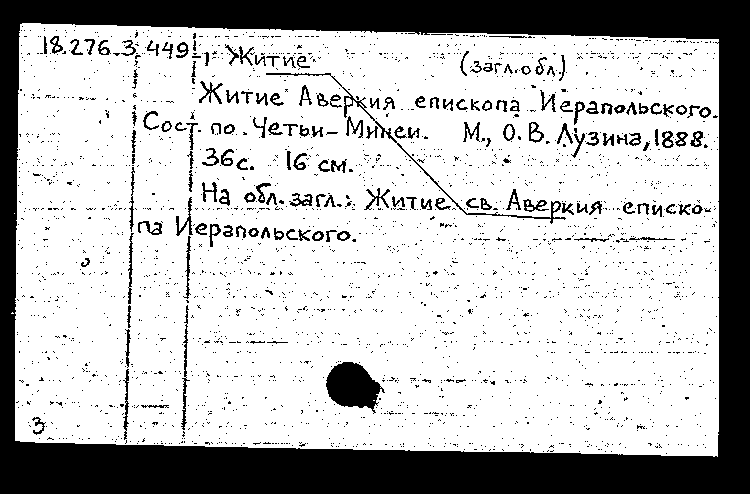 18.276.3.449, Житие (загл.обл.)
Житие Аверкия епископа Иерапольского.
Сост. по Четьи-Минеи. М., О.В. Лузина, 1888.
36с. 16 см.
На обл. загл.: Житие св. Аверкия еписко-
па Иерапольского.
3